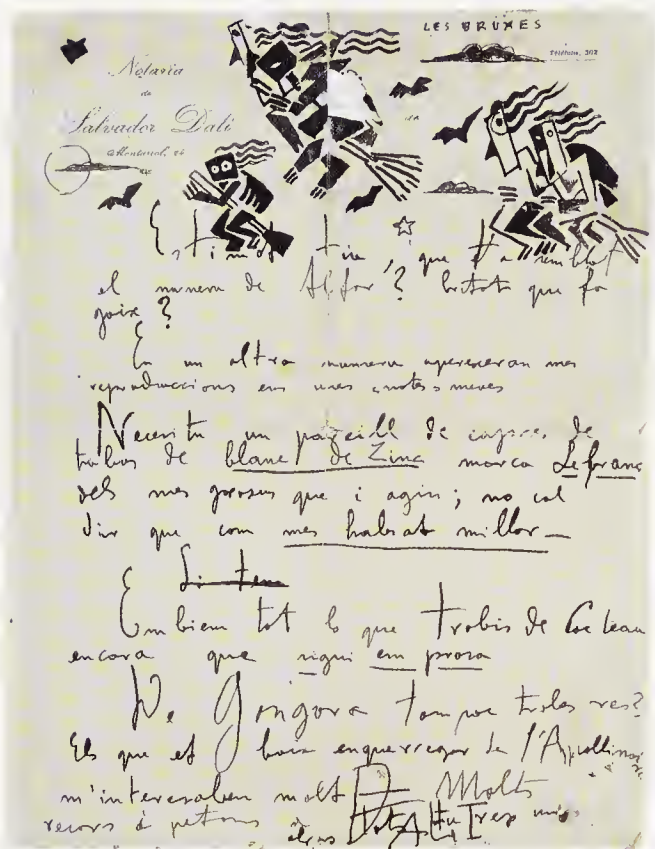 LES BRUXES
Telèfono, 302
Notaría
de
Salvador Dalí
Monturiol, 24
Estimat tiu, que t'a semblat
el numeru de Alfar? bitots que fa
goix?
En un altra numeru aperexeran mes
reproduccions em unes notes meves
Necesitu un pareill de capses de
tubus de blanc de Zinc marca Lefranc
dels mes grosus que i agin; no cal
dir que com mes habiat millor —
Embiem tot lo que trobis de Cocteau
encora que sigui em prosa
De Gongora tampoc trobes res?
Els que et baix enquerregar de l'Appollinaire
m'interesaben molt Molts
recors i petons